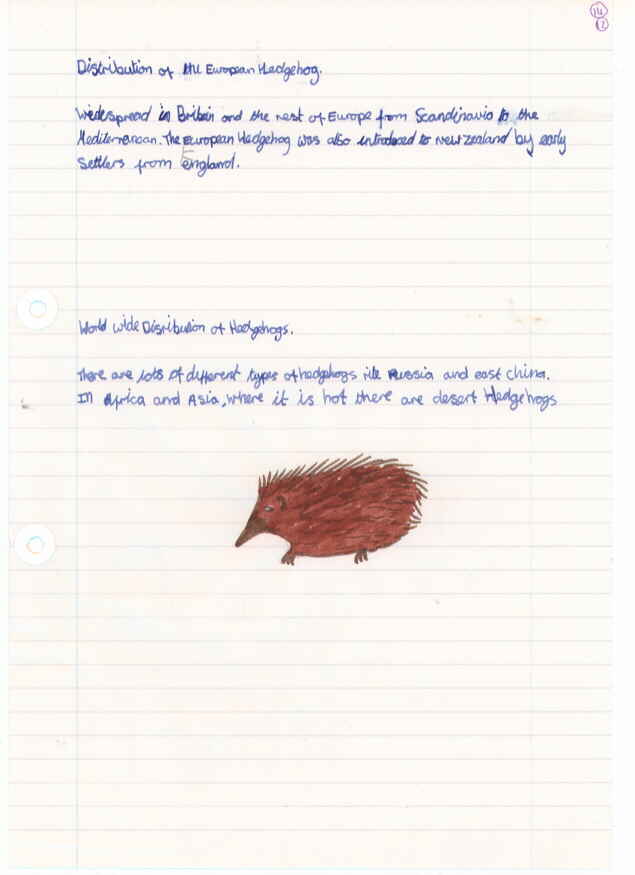 14
12
Distribution of the European Hedgehog.
Widespread in Britain and the rest of Europe from Scandinavia to the
Mediterranean. The European Hedgehog was also introduced to New Zealand by early
Settlers from England.
World wide Disribution of Hedgehogs.
There are lots of different types of hedgehogs like Russia and east China.
In Africa and Asia, where it is hot there are desert Hedgehogs